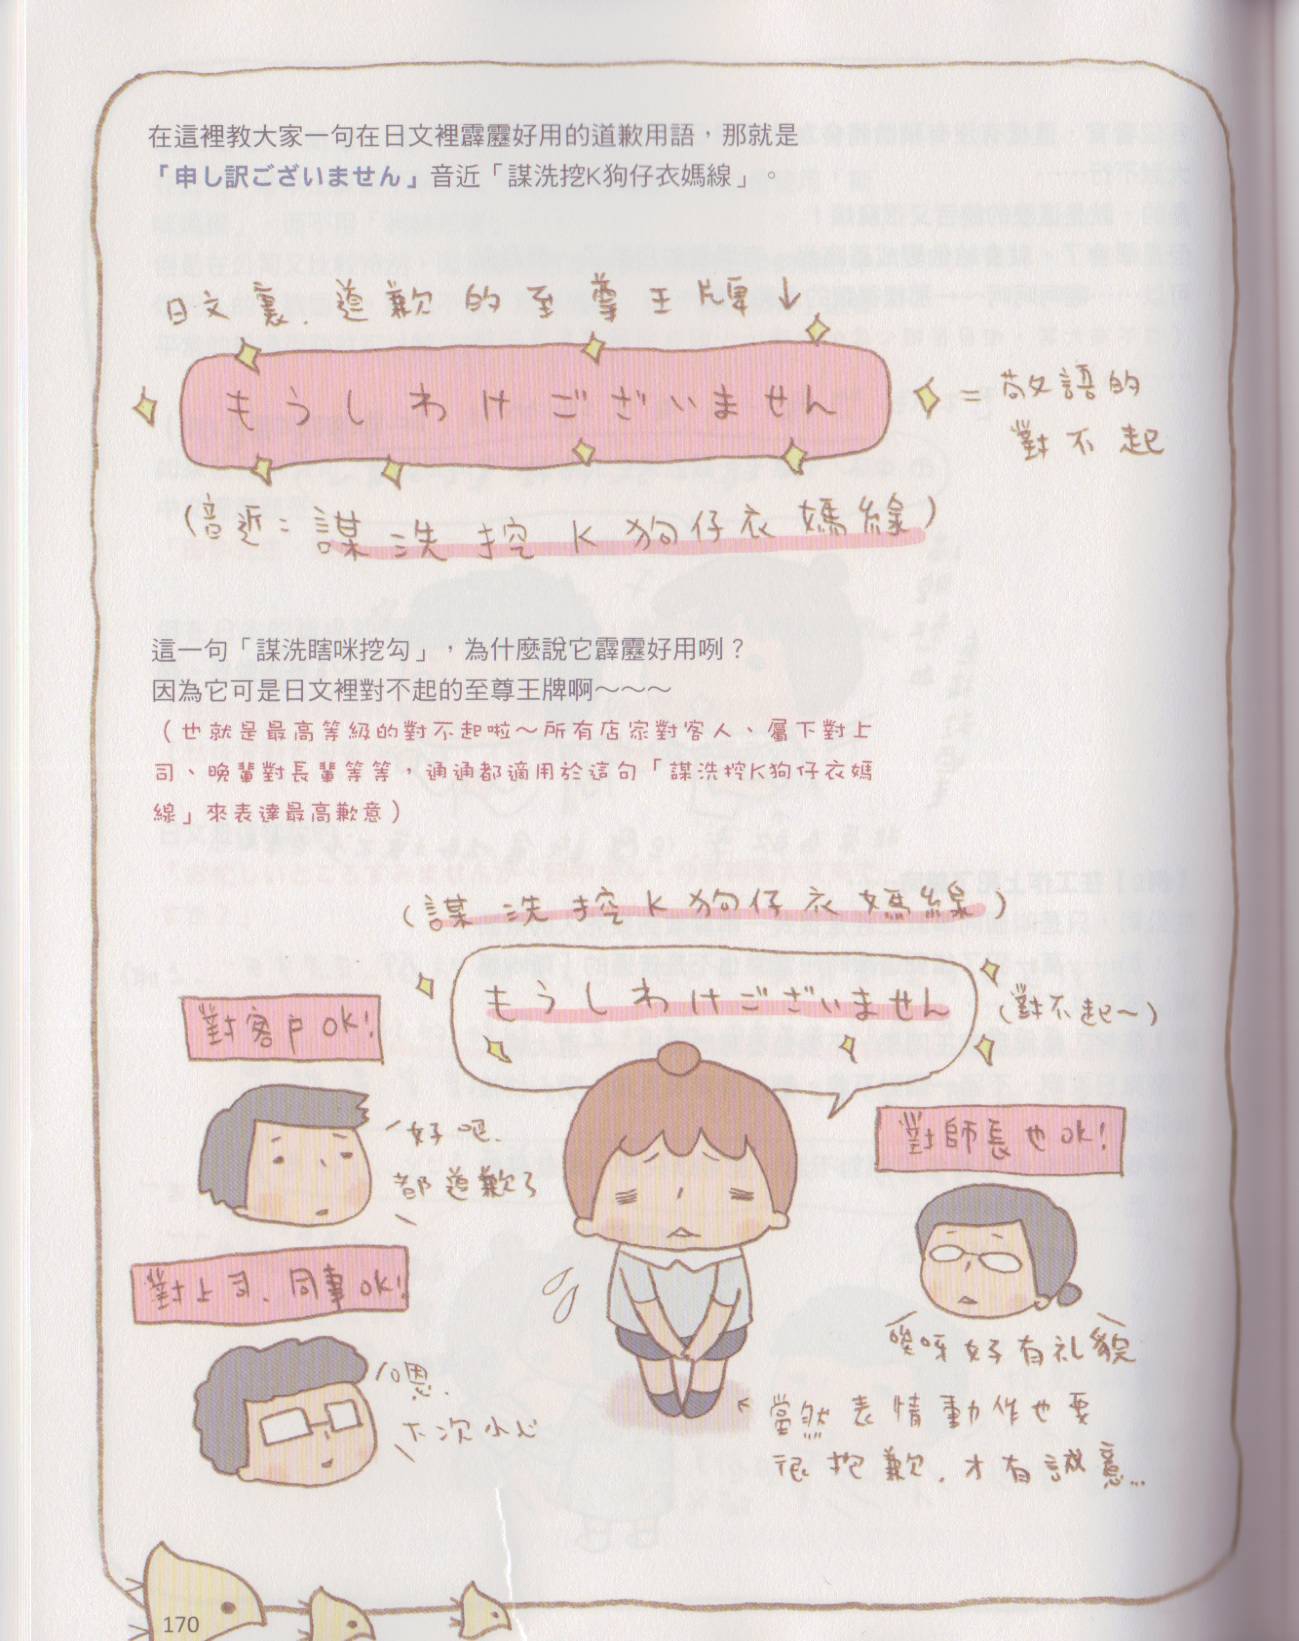 在這裡教大家一句在日文裡霹靂好用的道歉用語，那就是
「申し訳ございません」音近「謀洗挖K狗仔衣媽線」。
日文裏.道歉的至尊王牌↓
もうしわけございません
=敬語的
對不起
(音近:謀洗挖K狗仔衣媽線)
這一句「謀洗瞎咪挖勾」，為什麼說它霹靂好用咧？
因為它可是日文裡對不起的至尊王牌啊～～～
（也就是最高等級的對不起啦～所有店家對客人、屬下對上
司、晚輩對長輩等等，通通都適用於這句「謀洗挖K狗仔衣媽
線」來表達最高歉意）
(謀洗挖K狗仔衣媽線)
もうしわけございません
(對不起~)
對客戶OK!
好吧.
都道歉了
對師長也OK!
對上司、同事OK!
嗯.
下次小心
唉呀好有礼貌
當然表情動作也要
很抱歉.才有誠意...
170